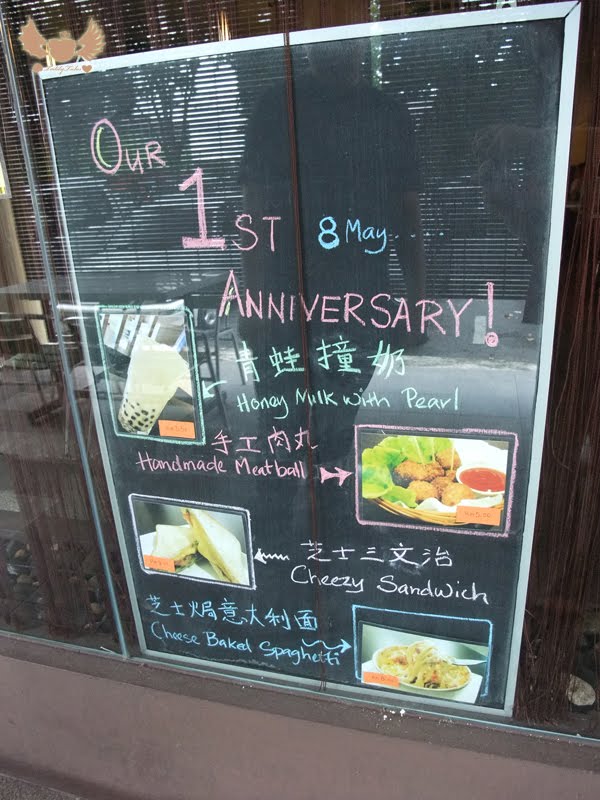 OUR
1ST 8 May.....
ANNIVERSARY!
青蛙撞奶
Honey Milk with Pearl
手工肉丸
Handmade Meatball
芝士三文治
Cheezy Sandwich
芝士焗意大利面
Cheese Baked Spaghetti